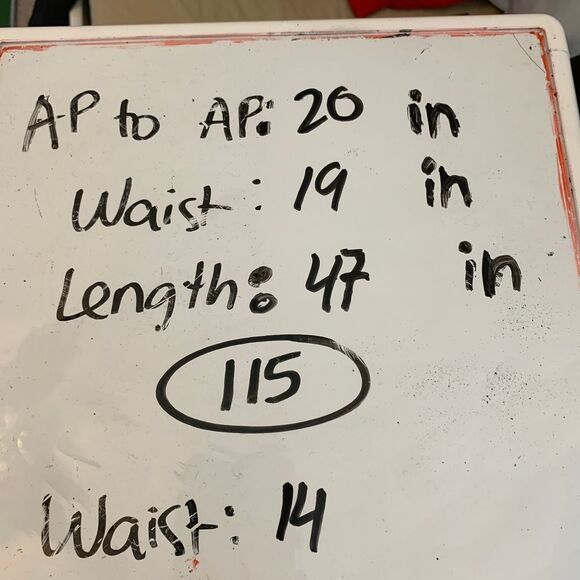 AP to AP: 20 in
Waist: 19 in
Length: 47 in
115
Waist: 14